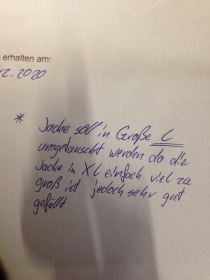 erhalten am:
2.2020
* Jacke soll in Große L
umgetauscht werden da die
Jacke in XL einfach viel zu
groß ist jedoch sehr gut
gefällt